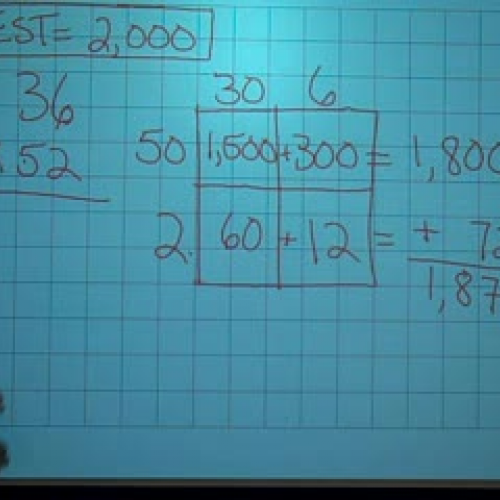 EST= 2,000
36
52
30 6
50 1,500+300 = 1,800
2. 60 + 12 = + 72
1,87